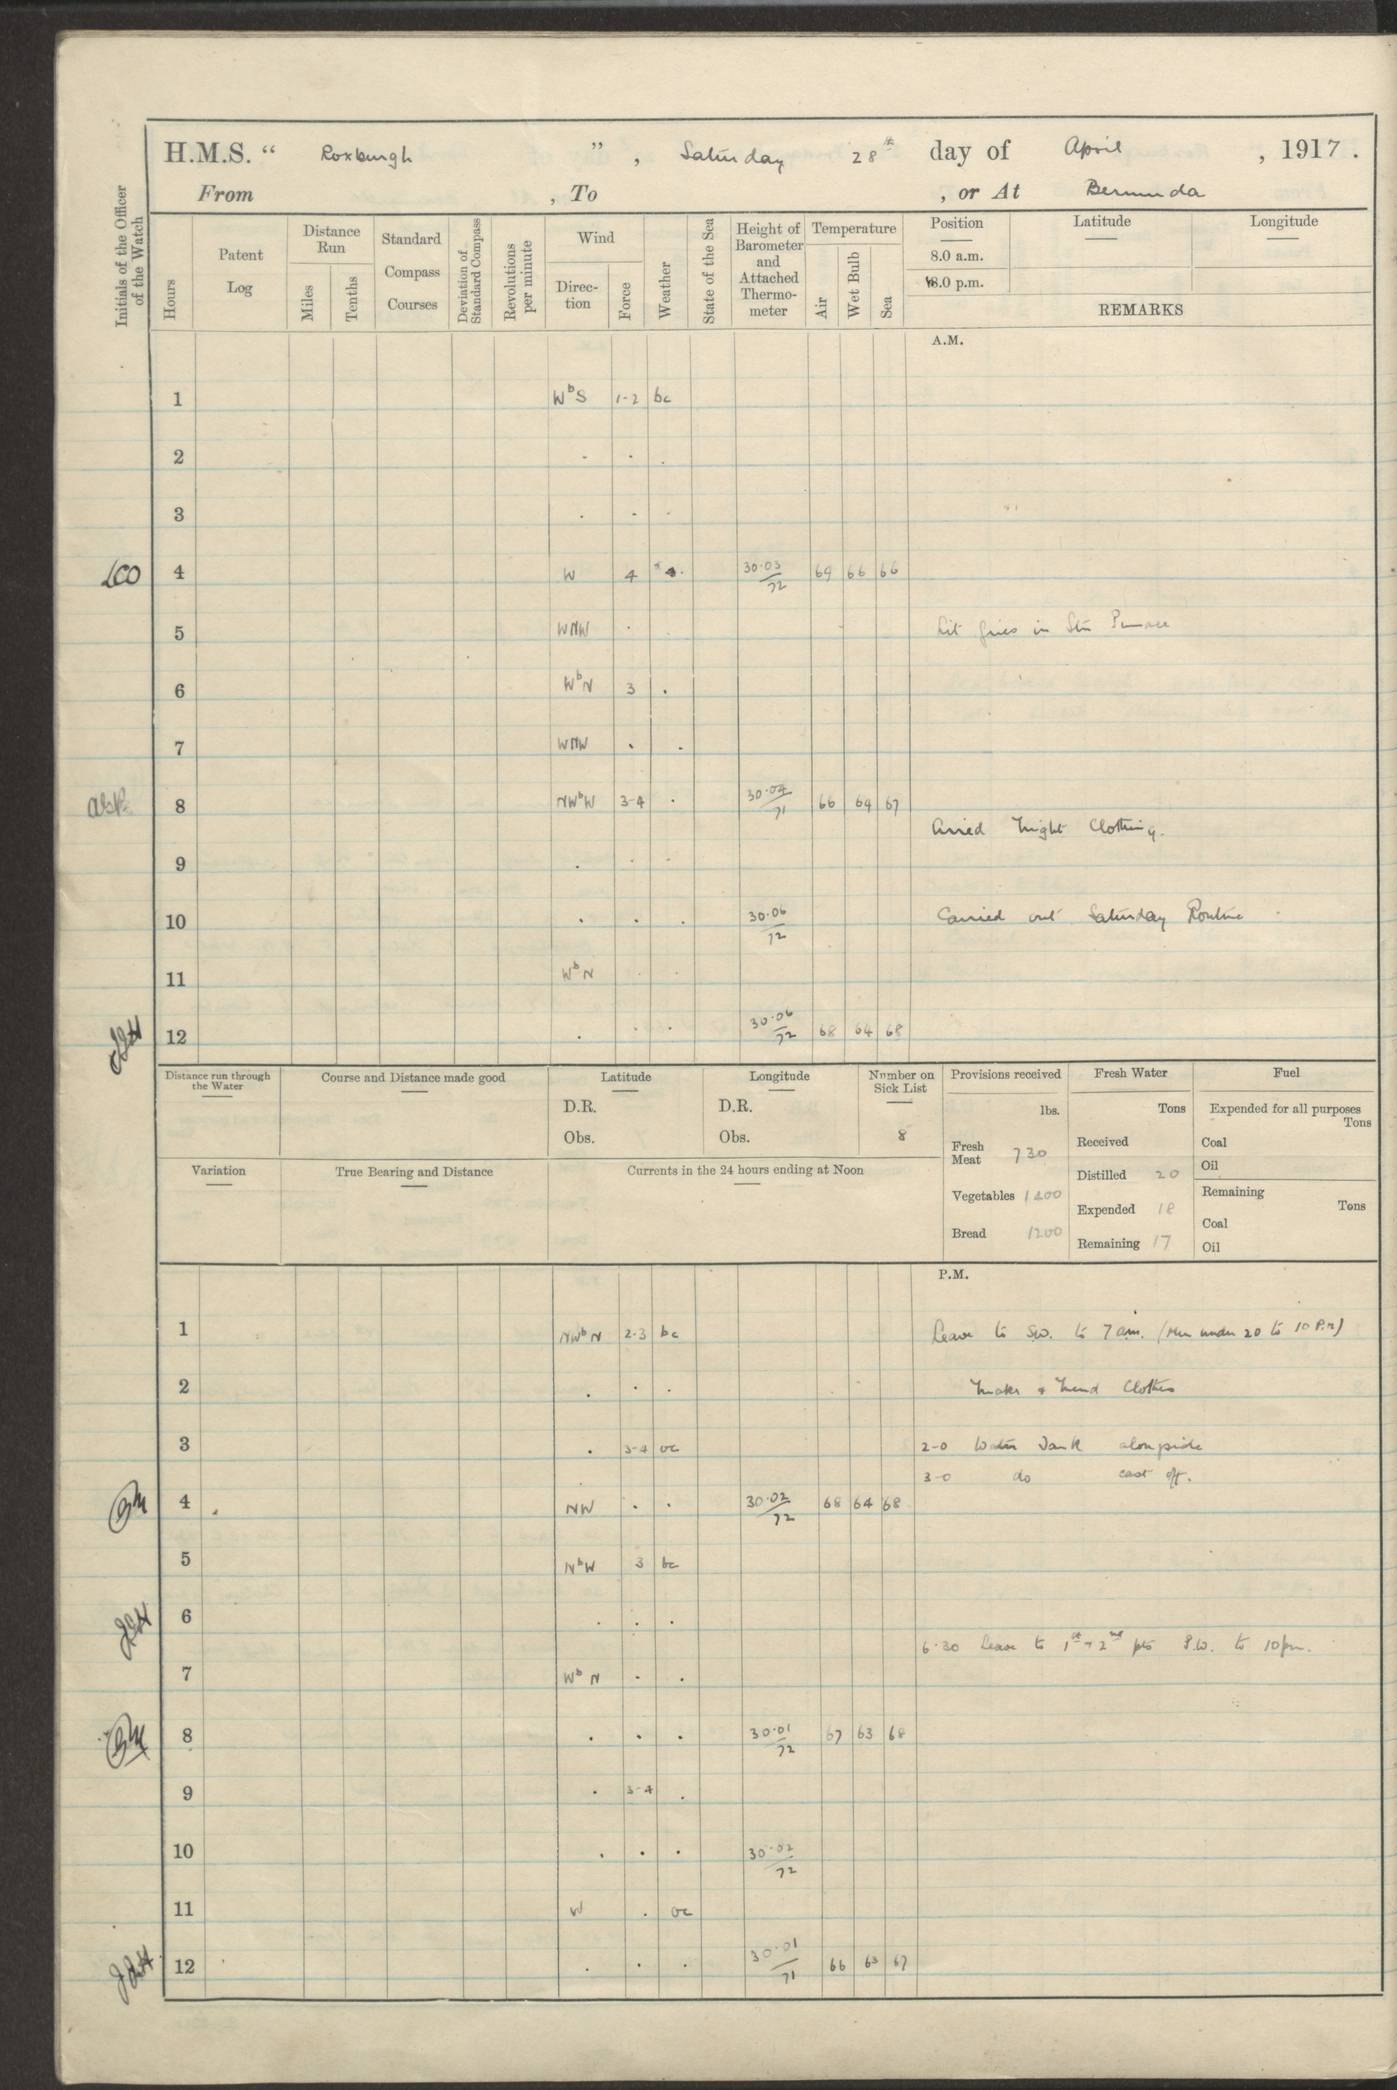 H.M.S. “ Roxburgh ” , Saturday 28th day of April , 1917 .
From , To , or At Bermuda
Initials of the Officer of the Watch
Hours
Patent Log
Distance Run
Miles
Tenths
Standard Compass Courses
Deviation of Standard Compass
Revolutions per minute
Wind
Direc-tion
Force
Weather
State of the Sea
Height of Barometer and Attached Thermo-meter
Temperature
Air
Wet Bulb
Sea
Position Latitude Longitude
8.0 a.m.
8.0 p.m.
REMARKS
A.M.
1 WbS 1-2 bc
2 . . .
3 . - .
4 W 4 30.03/72 69 66 66
5 WNW . Lit fires in Stm Pinnace
6 WbN 3 .
7 WNW . .
8 NWbW 3-4 . 30.04/71 66 64 67
Aired Night Clothing.
9 . . .
10 . . . 30.06/72 Carried out Saturday Routine
11 WbN . .
12 . . . 30.06/72 68 64 68
Distance run through the Water
Course and Distance made good
Latitude
D.R.
Obs.
Longitude
D.R.
Obs.
Number on Sick List
8
Variation
True Bearing and Distance
Currents in the 24 hours ending at Noon
Provisions received
lbs.
Fresh Meat 730
Vegetables 1200
Bread 1200
Fresh Water
Tons
Received
Distilled 20
Expended 18
Remaining 17
Fuel
Expended for all purposes
Tons
Coal
Oil
Remaining
Tons
Coal
Oil
P.M.
1 NWbN 2-3 bc Leave to S.W. to 7 a.m. (Men under 20 to 10 P.M)
2 . . . Make & Mend Clothes
3 . 3-4 oc 2-0 Water Tank alongside
3-0 do cast off.
4 NW . . 30.02/72 68 64 68
5 NbW 3 bc
6 . . .
6.30 Leave to 1st & 2nd pts P.W. to 10pm.
7 WbN . .
8 . . . 30.01/72 67 63 68
9 . 3-4 .
10 . . . 30.02/72
11 W . oc
12 . . . 30.01/71 66 63 67